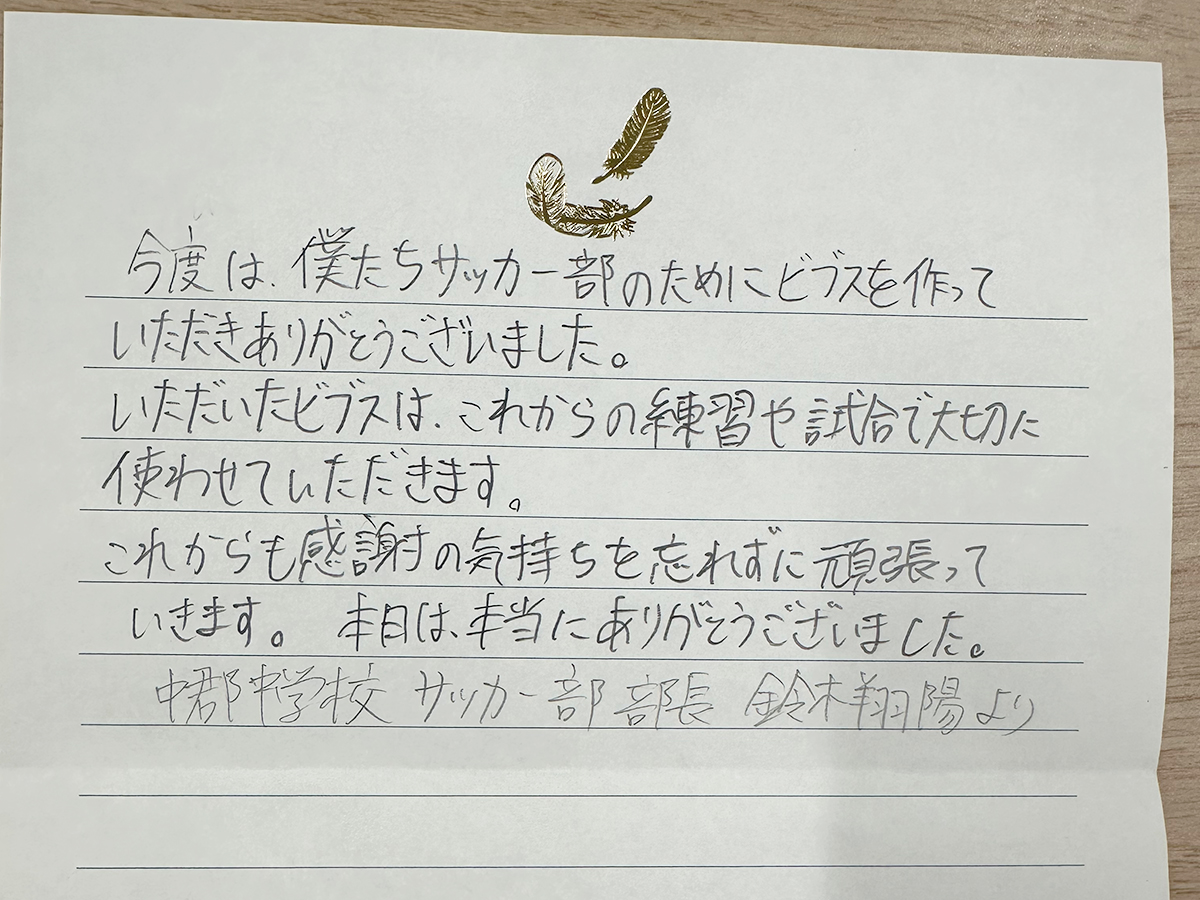 今度は、僕たちサッカー部のためにビブスを作って
いただきありがとうございました。
いただいたビブスは、これからの練習や試合で大切に
使わせていただきます。
これからも感謝の気持ちを忘れずに頑張って
いきます。 本日は、本当にありがとうございました。
中郡中学校 サッカー部 部長 鈴木翔陽より